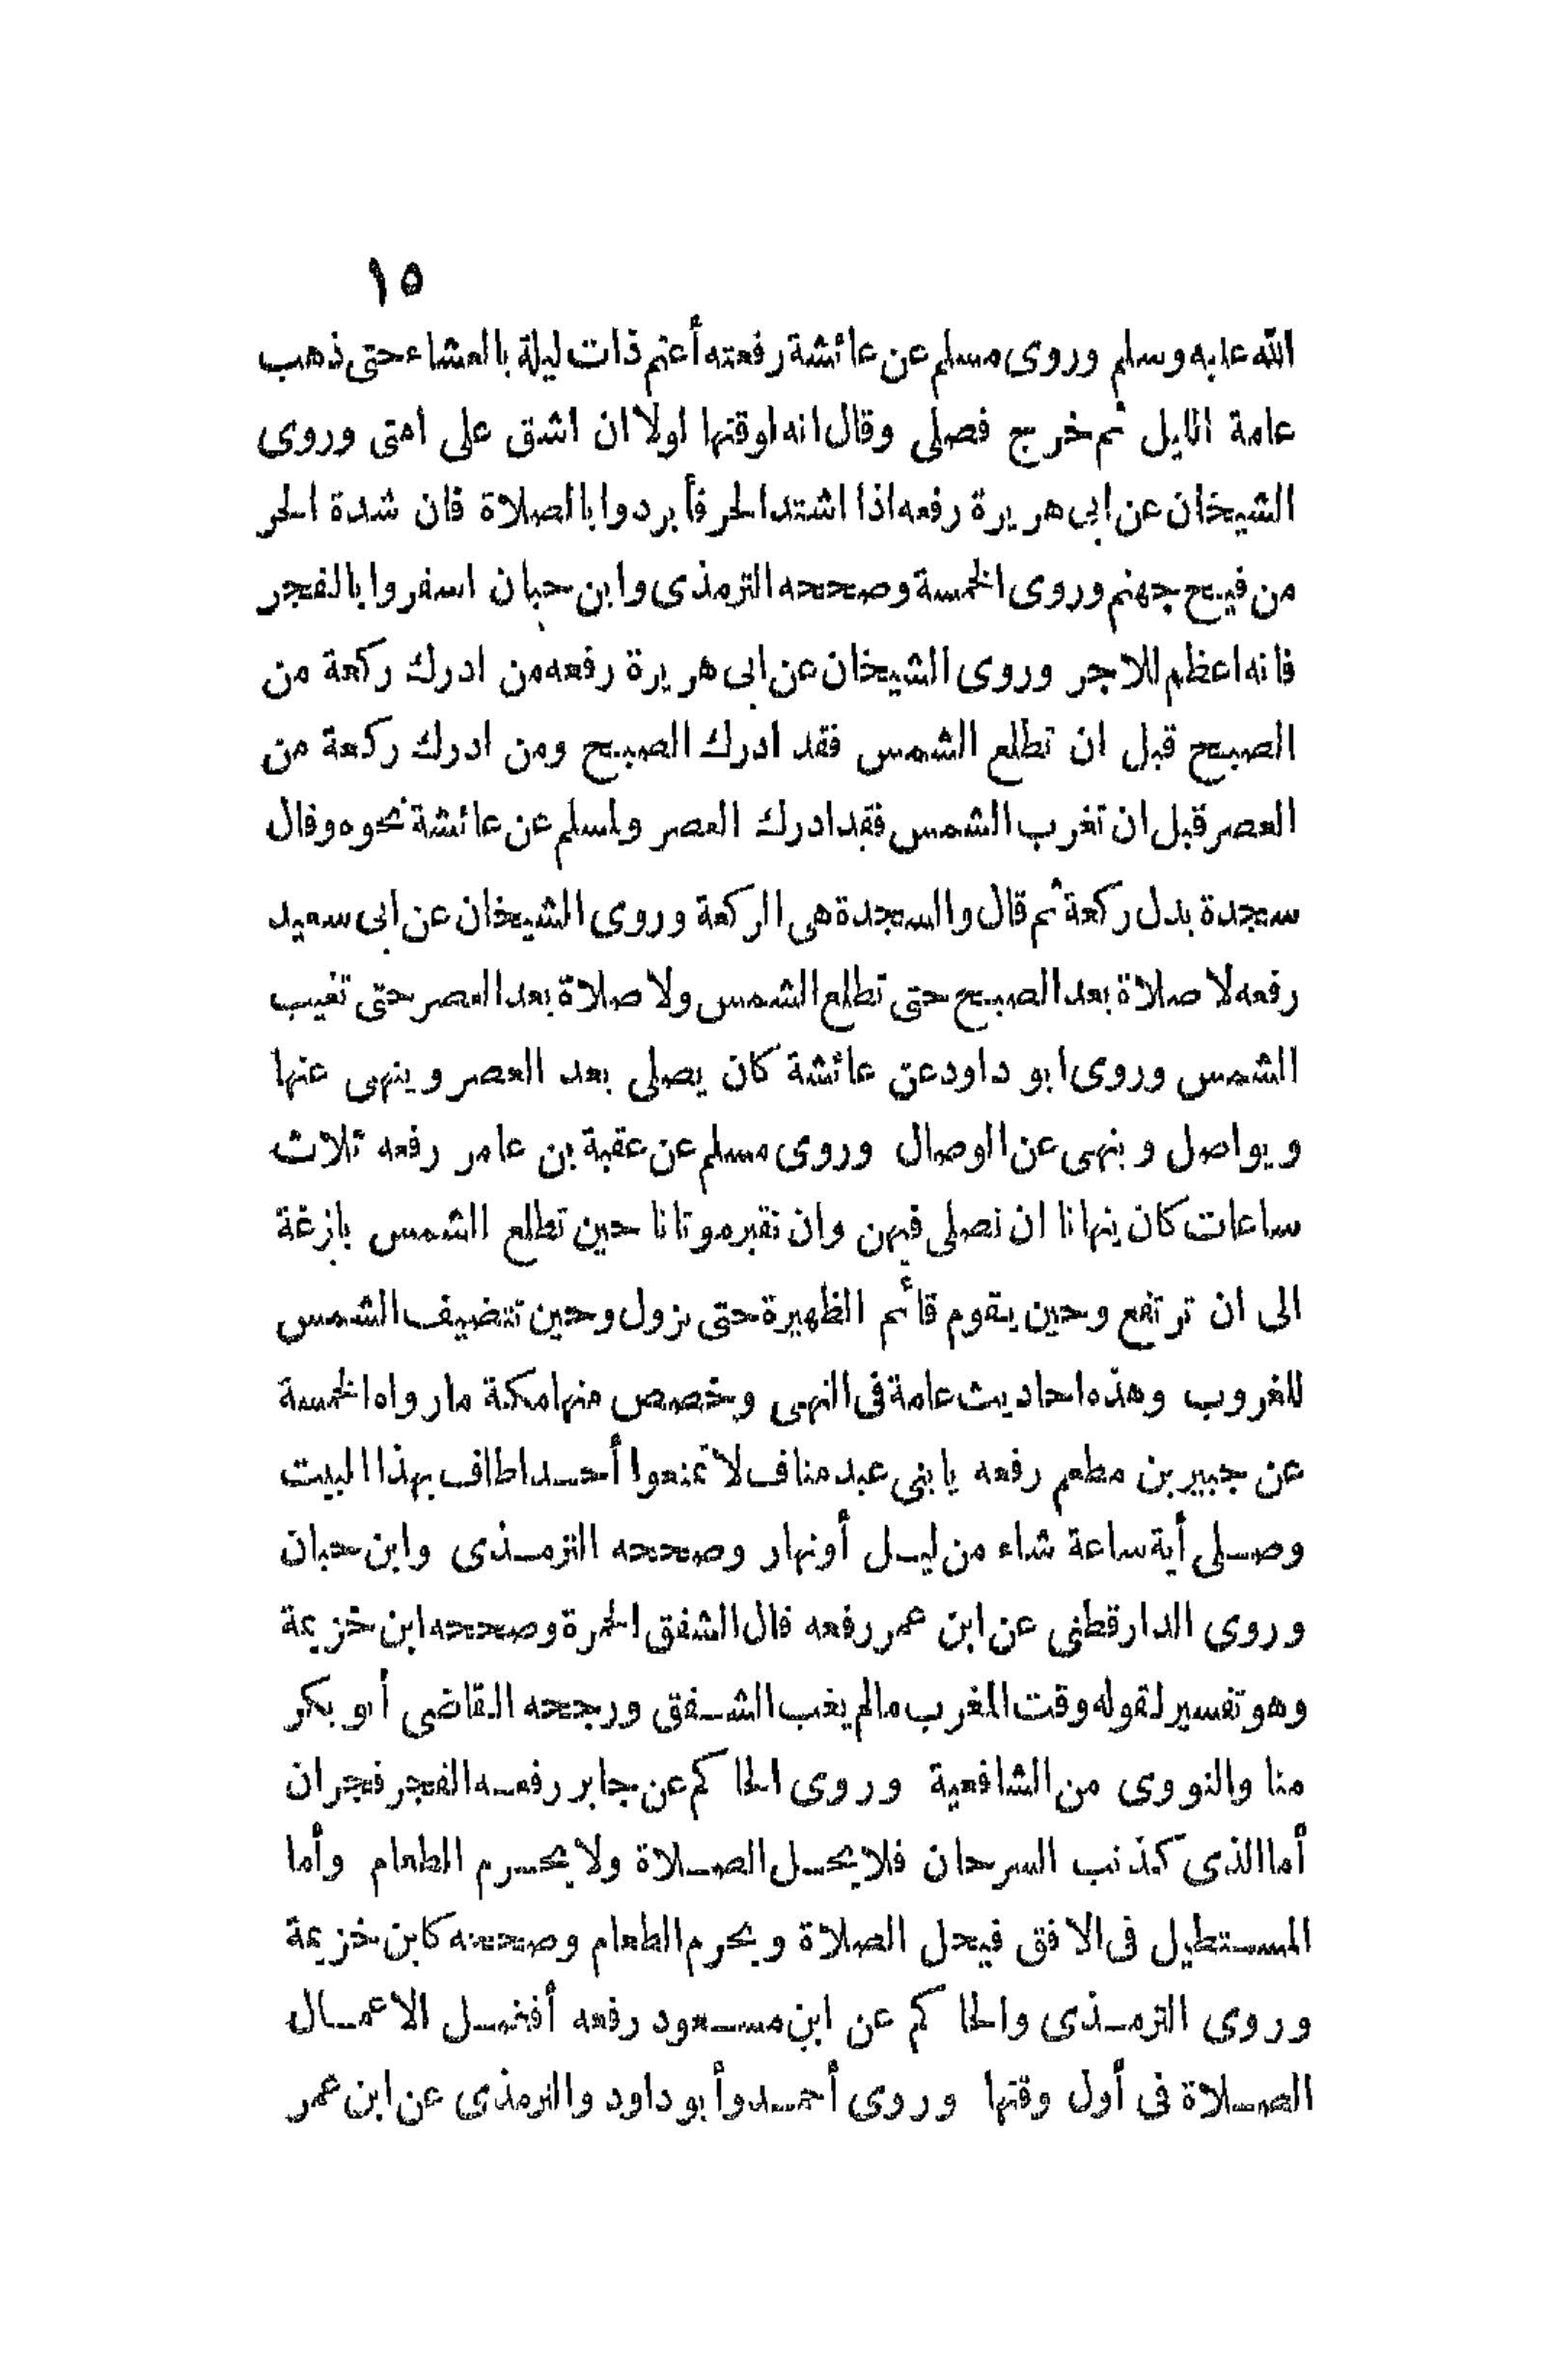 ١٥
الله عليه وسلم وروى مسلم عن عائشة رفعته أعتم ذات ليلة بالعشاء حتى ذهب
عامة الليل ثم خرج فصلى وقال انه لوقتها لولا ان اشق على امتى وروى
الشيخان عن ابى هريرة رفعه اذا اشتد الحر فأبردوا بالصلاة فان شدة الحر
من فيح جهنم وروى الخمسة وصححه الترمذى وابن حبان اسفروا بالفجر
فانه اعظم للاجر وروى الشيخان عن ابى هريرة رفعه من ادرك ركعة من
الصبح قبل ان تطلع الشمس فقد ادرك الصبح ومن ادرك ركعة من
العصر قبل ان تغرب الشمس فقد ادرك العصر ولمسلم عن عائشة نحوه وقال
سجدة بدل ركعة ثم قال والسجدة هى الركعة وروى الشيخان عن ابى سعيد
رفعه لا صلاة بعد الصبح حتى تطلع الشمس ولا صلاة بعد العصر حتى تغيب
الشمس وروى ابو داود عن عائشة كان يصلى بعد العصر وينهى عنها
ويواصل وينهى عن الوصال وروى مسلم عن عقبة بن عامر رفعه ثلاث
ساعات كان ينهانا ان نصلى فيهن وان نقبر موتانا حين تطلع الشمس بازغة
الى ان ترتفع وحين يقوم قائم الظهيرة حتى تزول وحين تتضيف الشمس
للغروب وهذه احاديث عامة فى النهى وخصص منها مكة مارواه الخمسة
عن جبير بن مطعم رفعه يا بنى عبد مناف لا تمنعوا أحدا طاف بهذا البيت
وصلى أية ساعة شاء من ليل أونهار وصححه الترمذى وابن حبان
وروى الدارقطنى عن ابن عمر رفعه قال الشفق الحمرة وصححه ابن خزيمة
وهو تفسير لقوله وقت المغرب مالم يغب الشفق ورجحه القاضى أبو بكر
منا والنووى من الشافعية وروى الحاكم عن جابر رفعه الفجر فجران
أما الذى كذنب السرحان فلا يحل الصلاة ولا يحرم الطعام وأما
المستطيل فى الافق فيحل الصلاة ويحرم الطعام وصححه كابن خزيمة
وروى الترمذى والحاكم عن ابن مسعود رفعه أفضل الاعمال
الصلاة فى أول وقتها وروى أحمد وأبو داود والترمذى عن ابن عمر